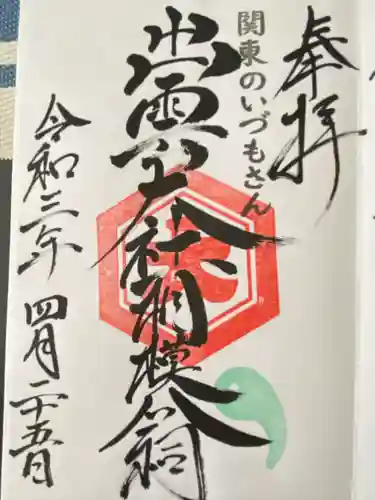 奉拝
関東のいづもさん
出雲大社相模分祠
令和三年 四月二十五日